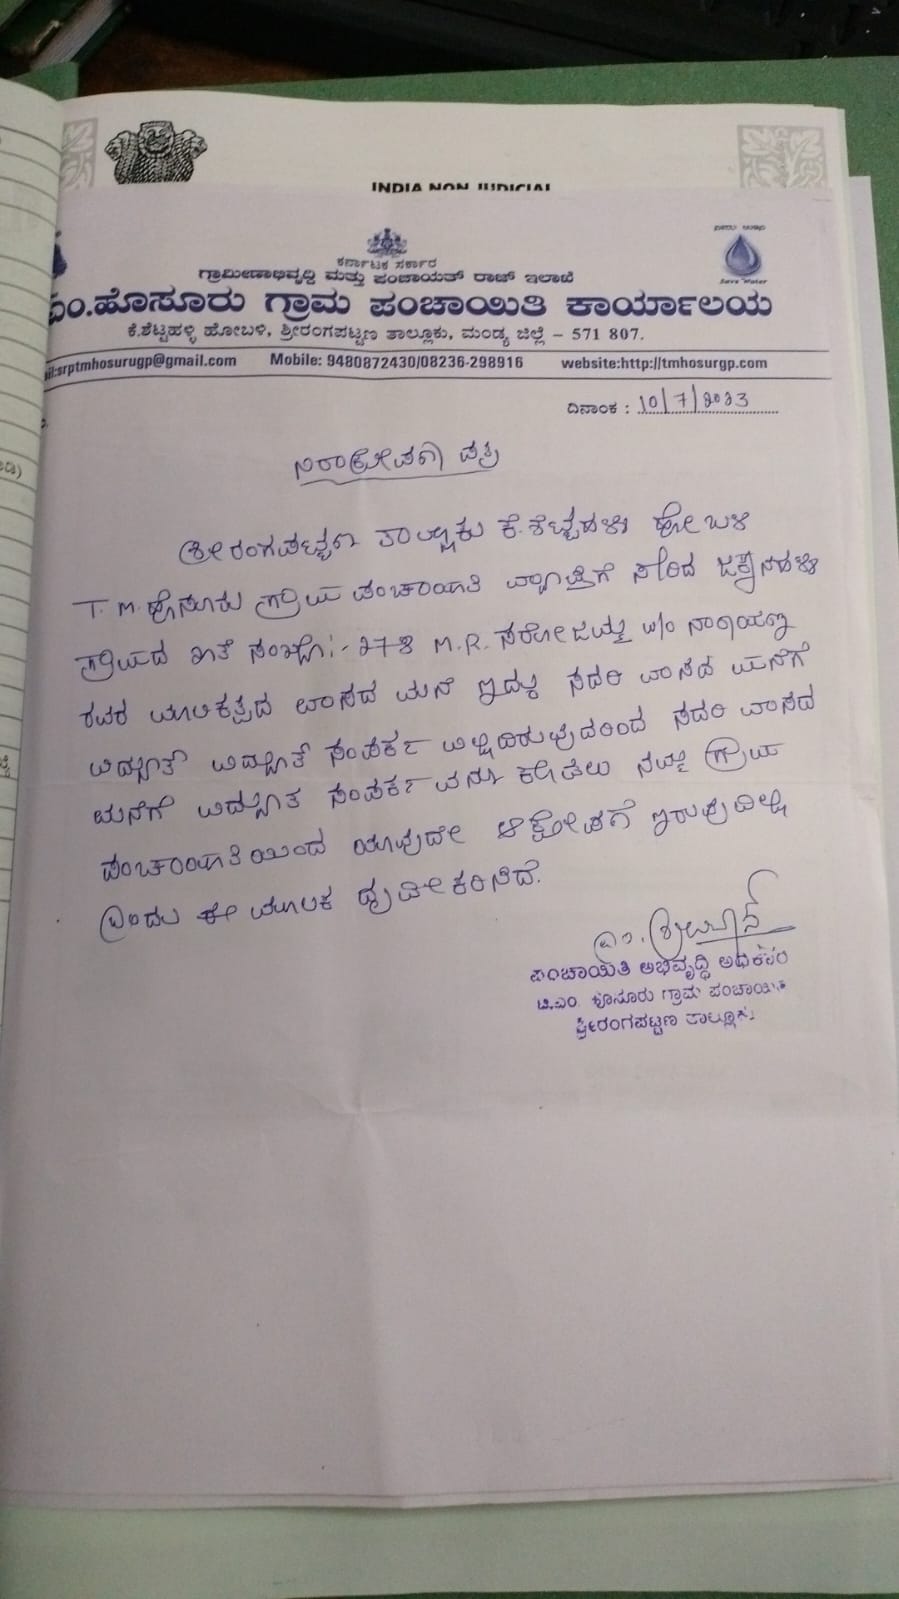 INDIA NON JUDICIAL
Save Water
ಕರ್ನಾಟಕ ಸರ್ಕಾರ
ಗ್ರಾಮೀಣಾಭಿವೃದ್ಧಿ ಮತ್ತು ಪಂಚಾಯತ್ ರಾಜ್ ಇಲಾಖೆ
ಎಂ.ಹೊಸೂರು ಗ್ರಾಮ ಪಂಚಾಯಿತಿ ಕಾರ್ಯಾಲಯ
ಕೆ.ಶೆಟ್ಟಹಳ್ಳಿ ಹೋಬಳಿ, ಶ್ರೀರಂಗಪಟ್ಟಣ ತಾಲ್ಲೂಕು, ಮಂಡ್ಯ ಜಿಲ್ಲೆ – 571 807.
il:srptmhosurugp@gmail.com Mobile: 9480872430/08236-298916 website:http://tmhosurgp.com
ದಿನಾಂಕ : 10/7/2023
ನಿರಾಕ್ಷೇಪಣಾ ಪತ್ರ
ಶ್ರೀರಂಗಪಟ್ಟಣ ತಾಲ್ಲೂಕು ಕೆ.ಶೆಟ್ಟಹಳ್ಳಿ ಹೋಬಳಿ
T.M.ಹೊಸೂರು ಗ್ರಾಮ ಪಂಚಾಯಿತಿ ವ್ಯಾಪ್ತಿಗೆ ಸೇರಿದ
ಗ್ರಾಮದ ಖಾತೆ ಸಂಖ್ಯೆ:- 278 M.R. ಸರೋಜಮ್ಮ w/o ನಾರಾಯಣ
ರವರ ಮಾಲಿಕತ್ವದ ವಾಸದ ಮನೆ ಇದ್ದು ಸದರಿ ವಾಸದ ಮನೆಗೆ
ವಿದ್ಯುತ್ ಸಂಪರ್ಕ ಇಲ್ಲದಿರುವುದರಿಂದ ಸದರಿ ವಾಸದ
ಮನೆಗೆ ವಿದ್ಯುತ್ ಸಂಪರ್ಕವನ್ನು ನೀಡಲು ನಮ್ಮ ಗ್ರಾಮ
ಪಂಚಾಯಿತಿಯಿಂದ ಯಾವುದೇ ಆಕ್ಷೇಪಣೆ ಇರುವುದಿಲ್ಲ
ಎಂದು ಈ ಮೂಲಕ ದೃಢೀಕರಿಸಿದೆ.
ಪಂಚಾಯಿತಿ ಅಭಿವೃದ್ಧಿ ಅಧಿಕಾರಿ
ಟಿ.ಎಂ. ಹೊಸೂರು ಗ್ರಾಮ ಪಂಚಾಯಿತಿ
ಶ್ರೀರಂಗಪಟ್ಟಣ ತಾಲ್ಲೂಕು